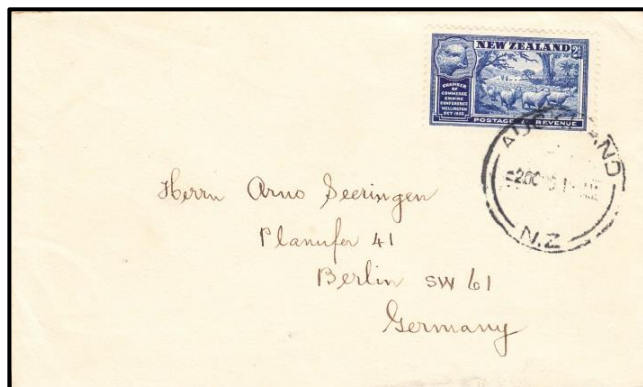 NEW ZEALAND
CHAMBER
OF
COMMERCE
EMPIRE
CONFERENCE
WELLINGTON
OCT 1936
POSTAGE & REVENUE
AUCKLAND
N.Z.
Herrn Arno Seeringen
Planufer 41
Berlin SW 61
Germany